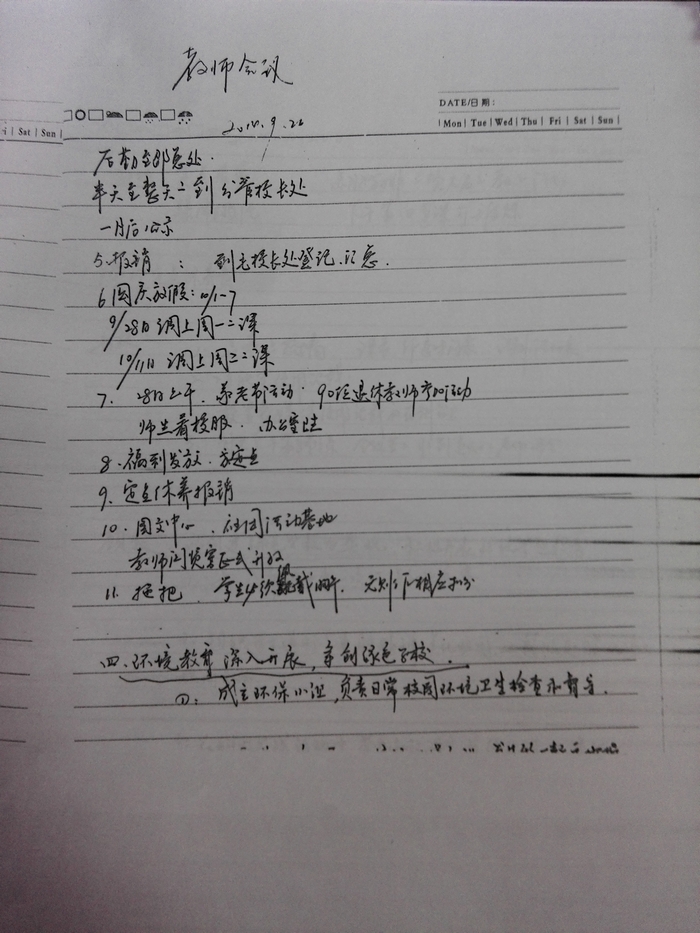 教师会议
DATE/日期:
i | Sat | Sun |
| Mon | Tue | Wed | Thu | Fri | Sat | Sun |
9.26
后勤
半天至整天: 到分管校长处
一月后公示
5.报销 : 到 校长处登记
6 国庆放假: 10/1-7
9/28日 调上周一二课
10/11日 调上周三二课
7. 28日上午. 养老节活动. 90 退休教师参加活动
师生着校服. 办公室
8. 福利发放. 定点
9. 定点休养报销
10. 图文中心. 社团活动基地
教师阅览室正式开放
11. 拖把. 学生必须 否则 相应扣分
四. 环境教育深入开展, 争创绿色学校.
①. 成立环保小组, 负责日常校园环境卫生检查和督导.